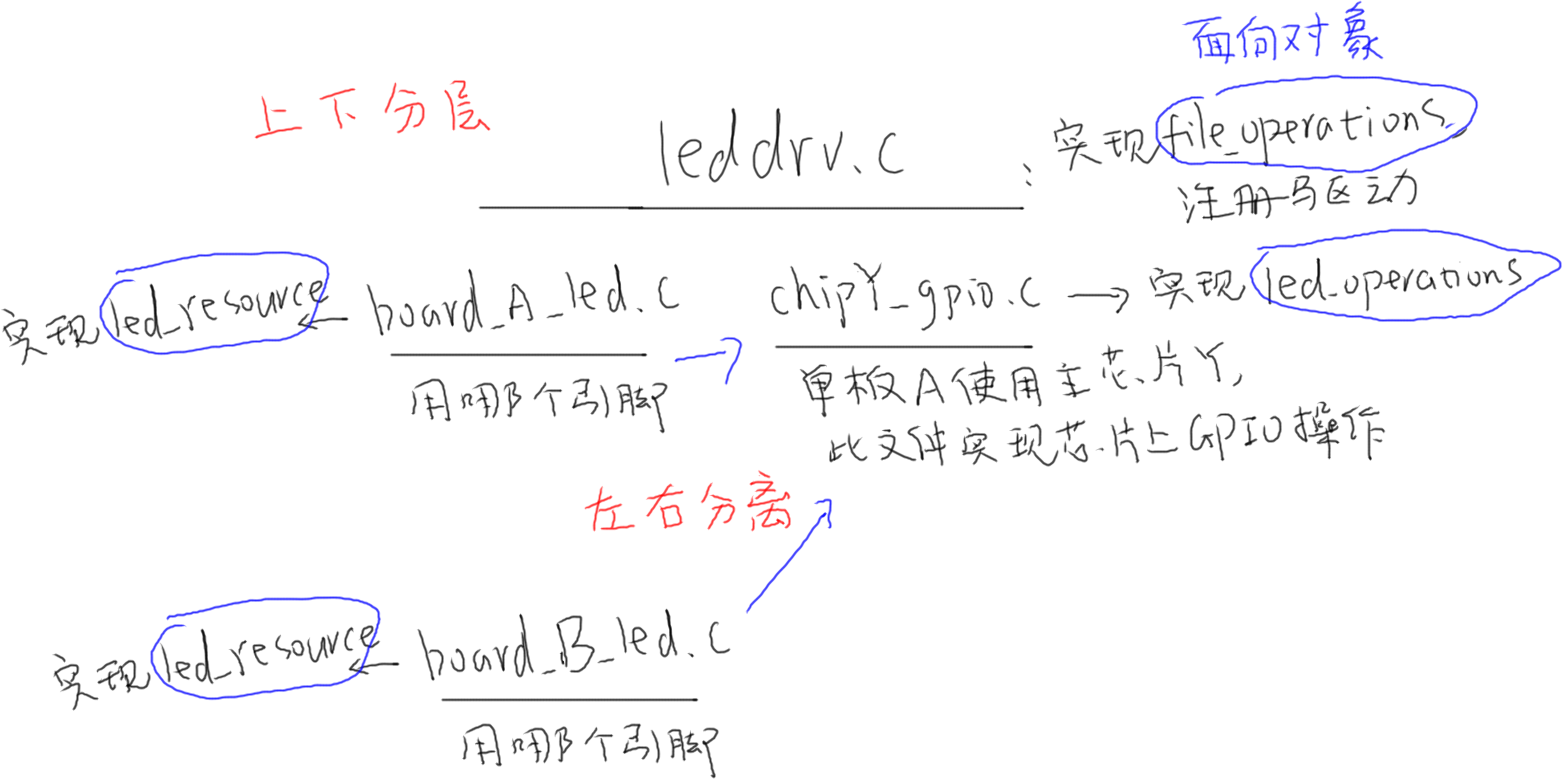 面向对象
上下分层
leddrv.c : 实现file_operations
注册驱动
实现led_resource ← board_A_led.c
chipY_gpio.c → 实现led_operations
用哪个引脚
单板A使用主芯片Y,
此文件实现芯片上GPIO操作
左右分离
实现led_resource ← board_B_led.c
用哪个引脚